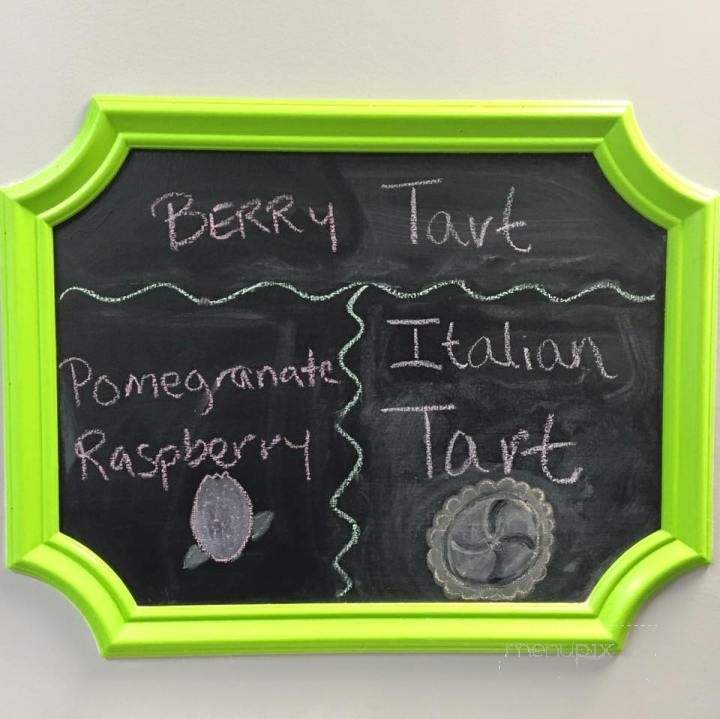 BERRY Tart
Pomegranate
Raspberry
Italian
Tart
menupix